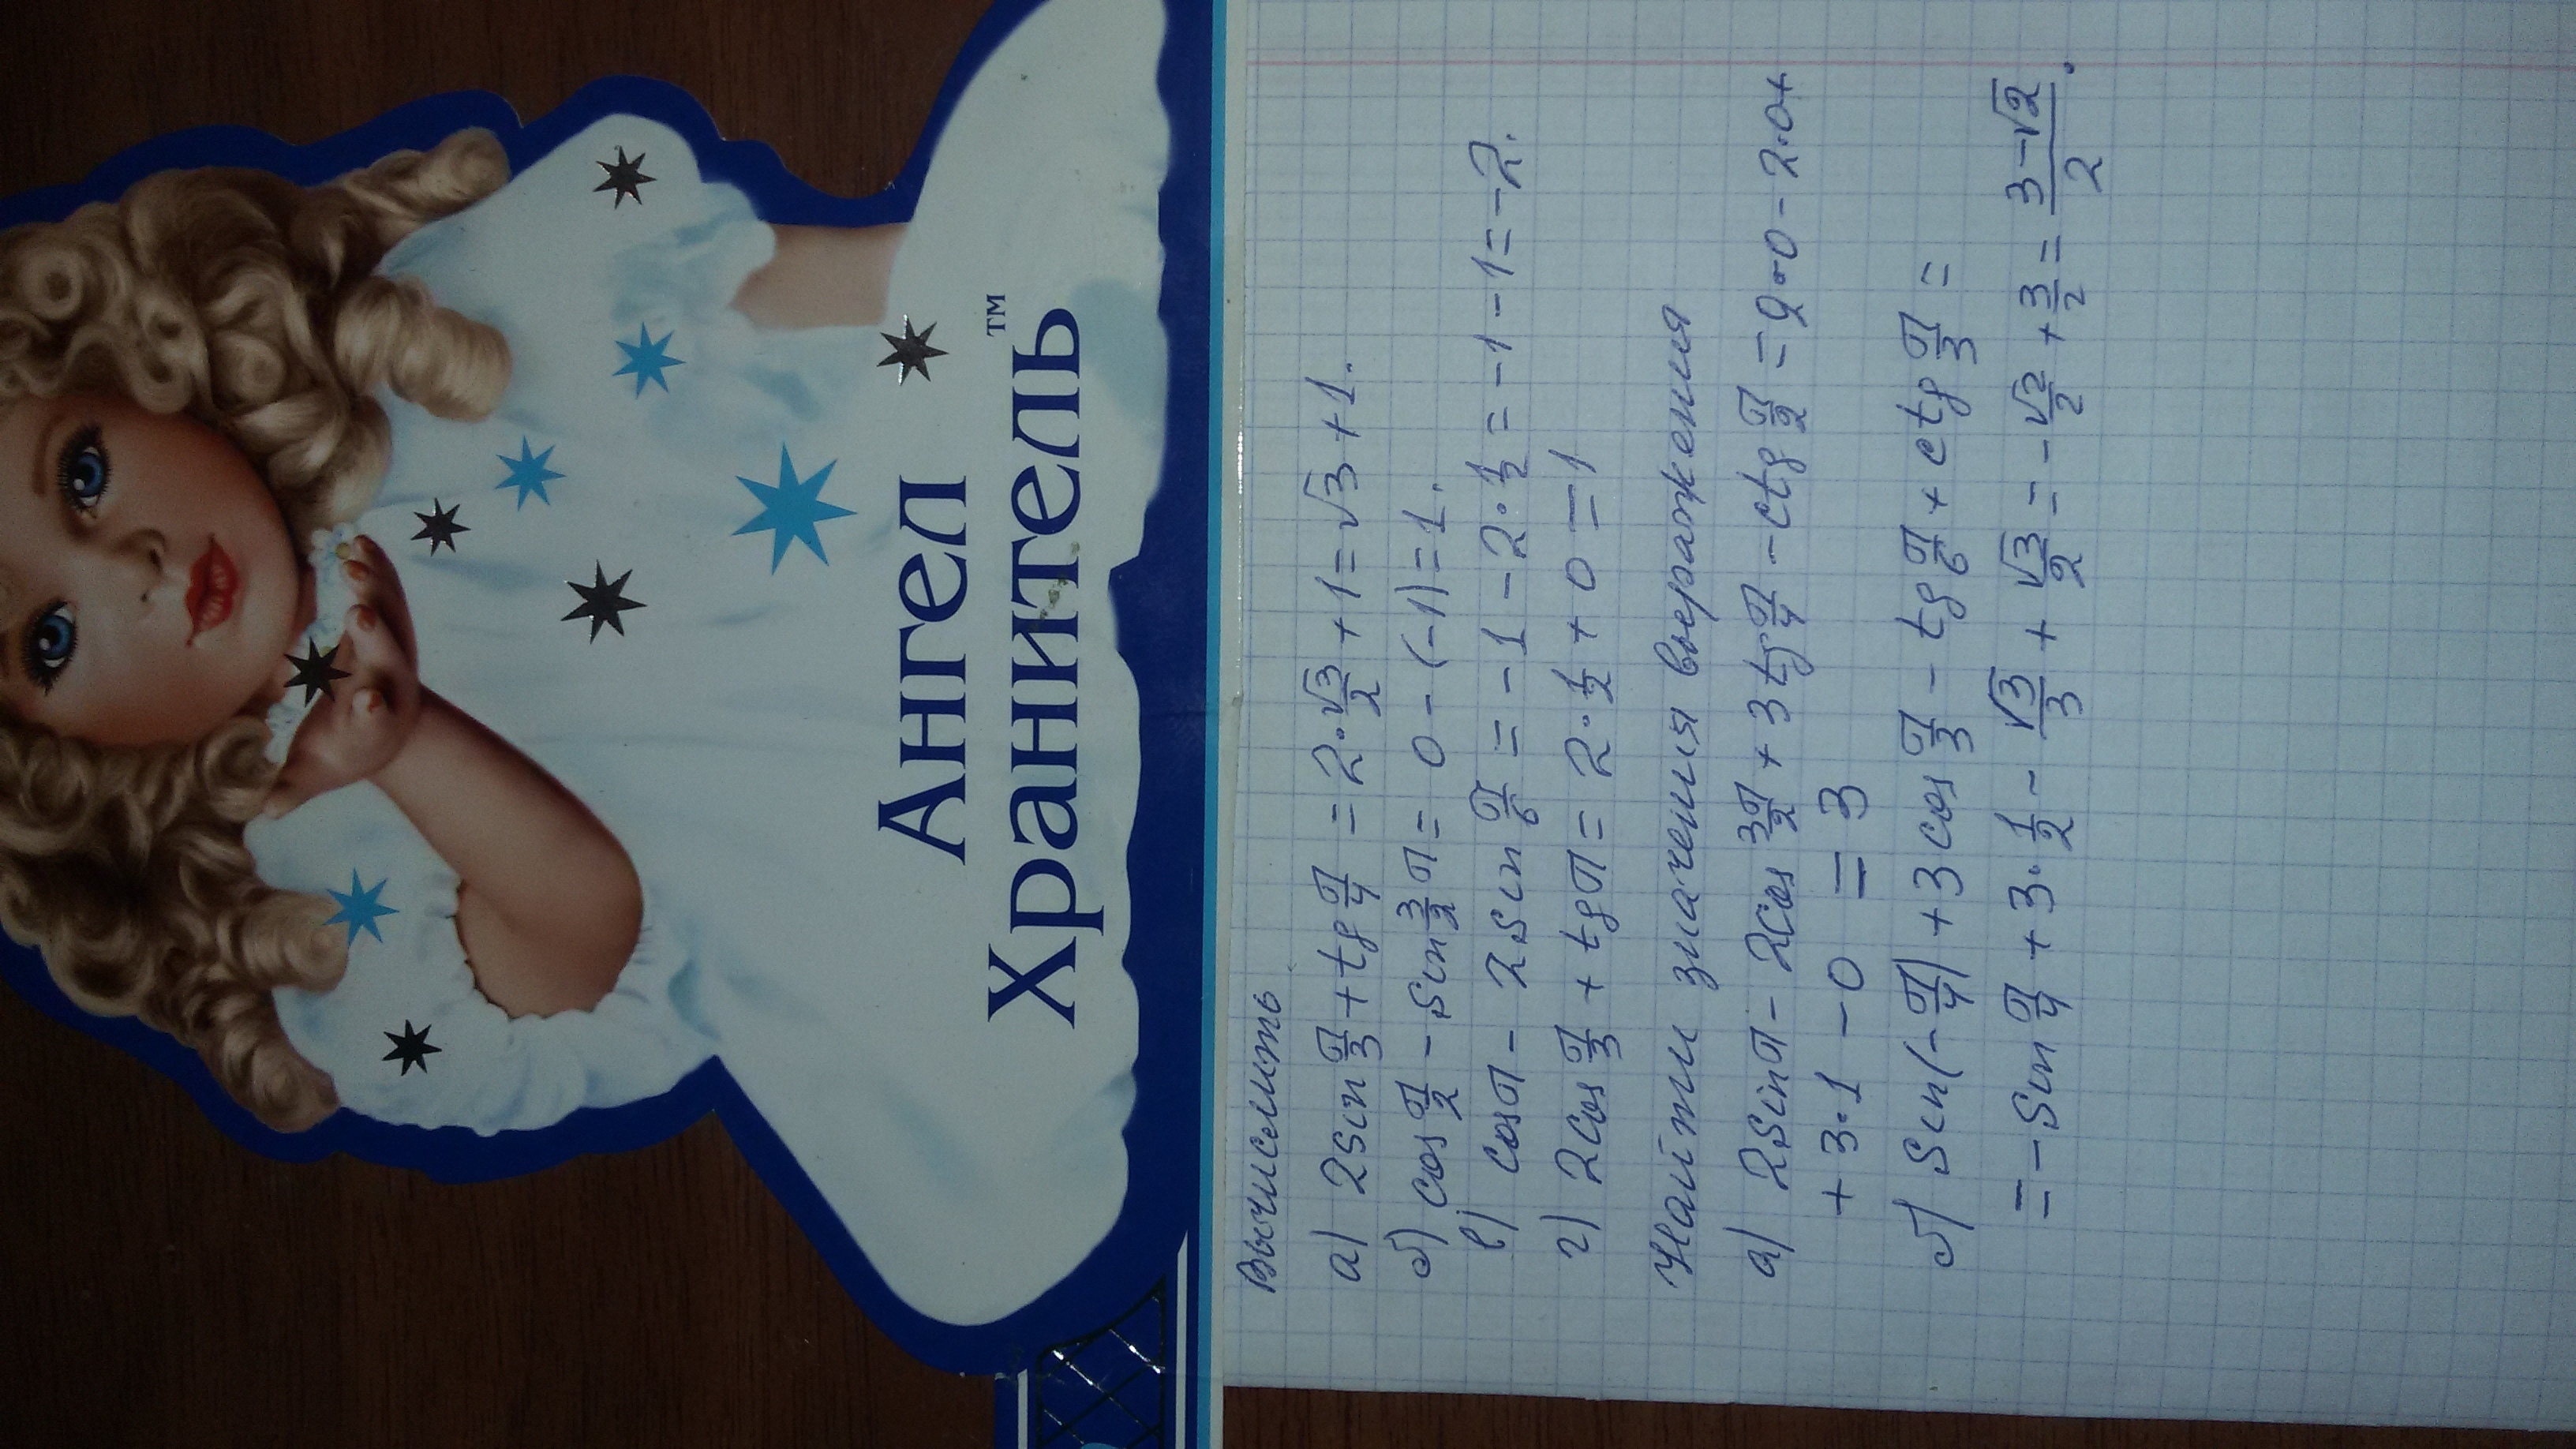 Ангел
Хранитель™
Вычислить
а) 2sin π/3 + tg π/4 = 2·√3/2 + 1 = √3 + 1.
б) cos π/2 - sin 3/2 π = 0 - (-1) = 1.
в) cos π - 2 sin π/6 = -1 - 2·1/2 = -1 - 1 = -2.
г) 2cos π/3 + tg π = 2·1/2 + 0 = 1
Найти значения выражения
а) 2sin π - 2cos 3π/2 + 3tg π/4 - ctg π/2 = 2·0 - 2·0+
+ 3·1 - 0 = 3
б) sin(-π/4) + 3cos π/3 - tg π/6 + ctg π/3 =
= - sin π/4 + 3·1/2 - √3/3 + √3/2 = - √2/2 + 3/2 = 3-√2/2.